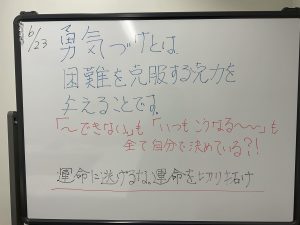 6/23
勇気づけとは
困難を克服する活力を
与えることです
「〜できない」も「いつもこうなる〜〜」も
全て自分で決めている?!
運命に逃げるな、運命を切り拓け